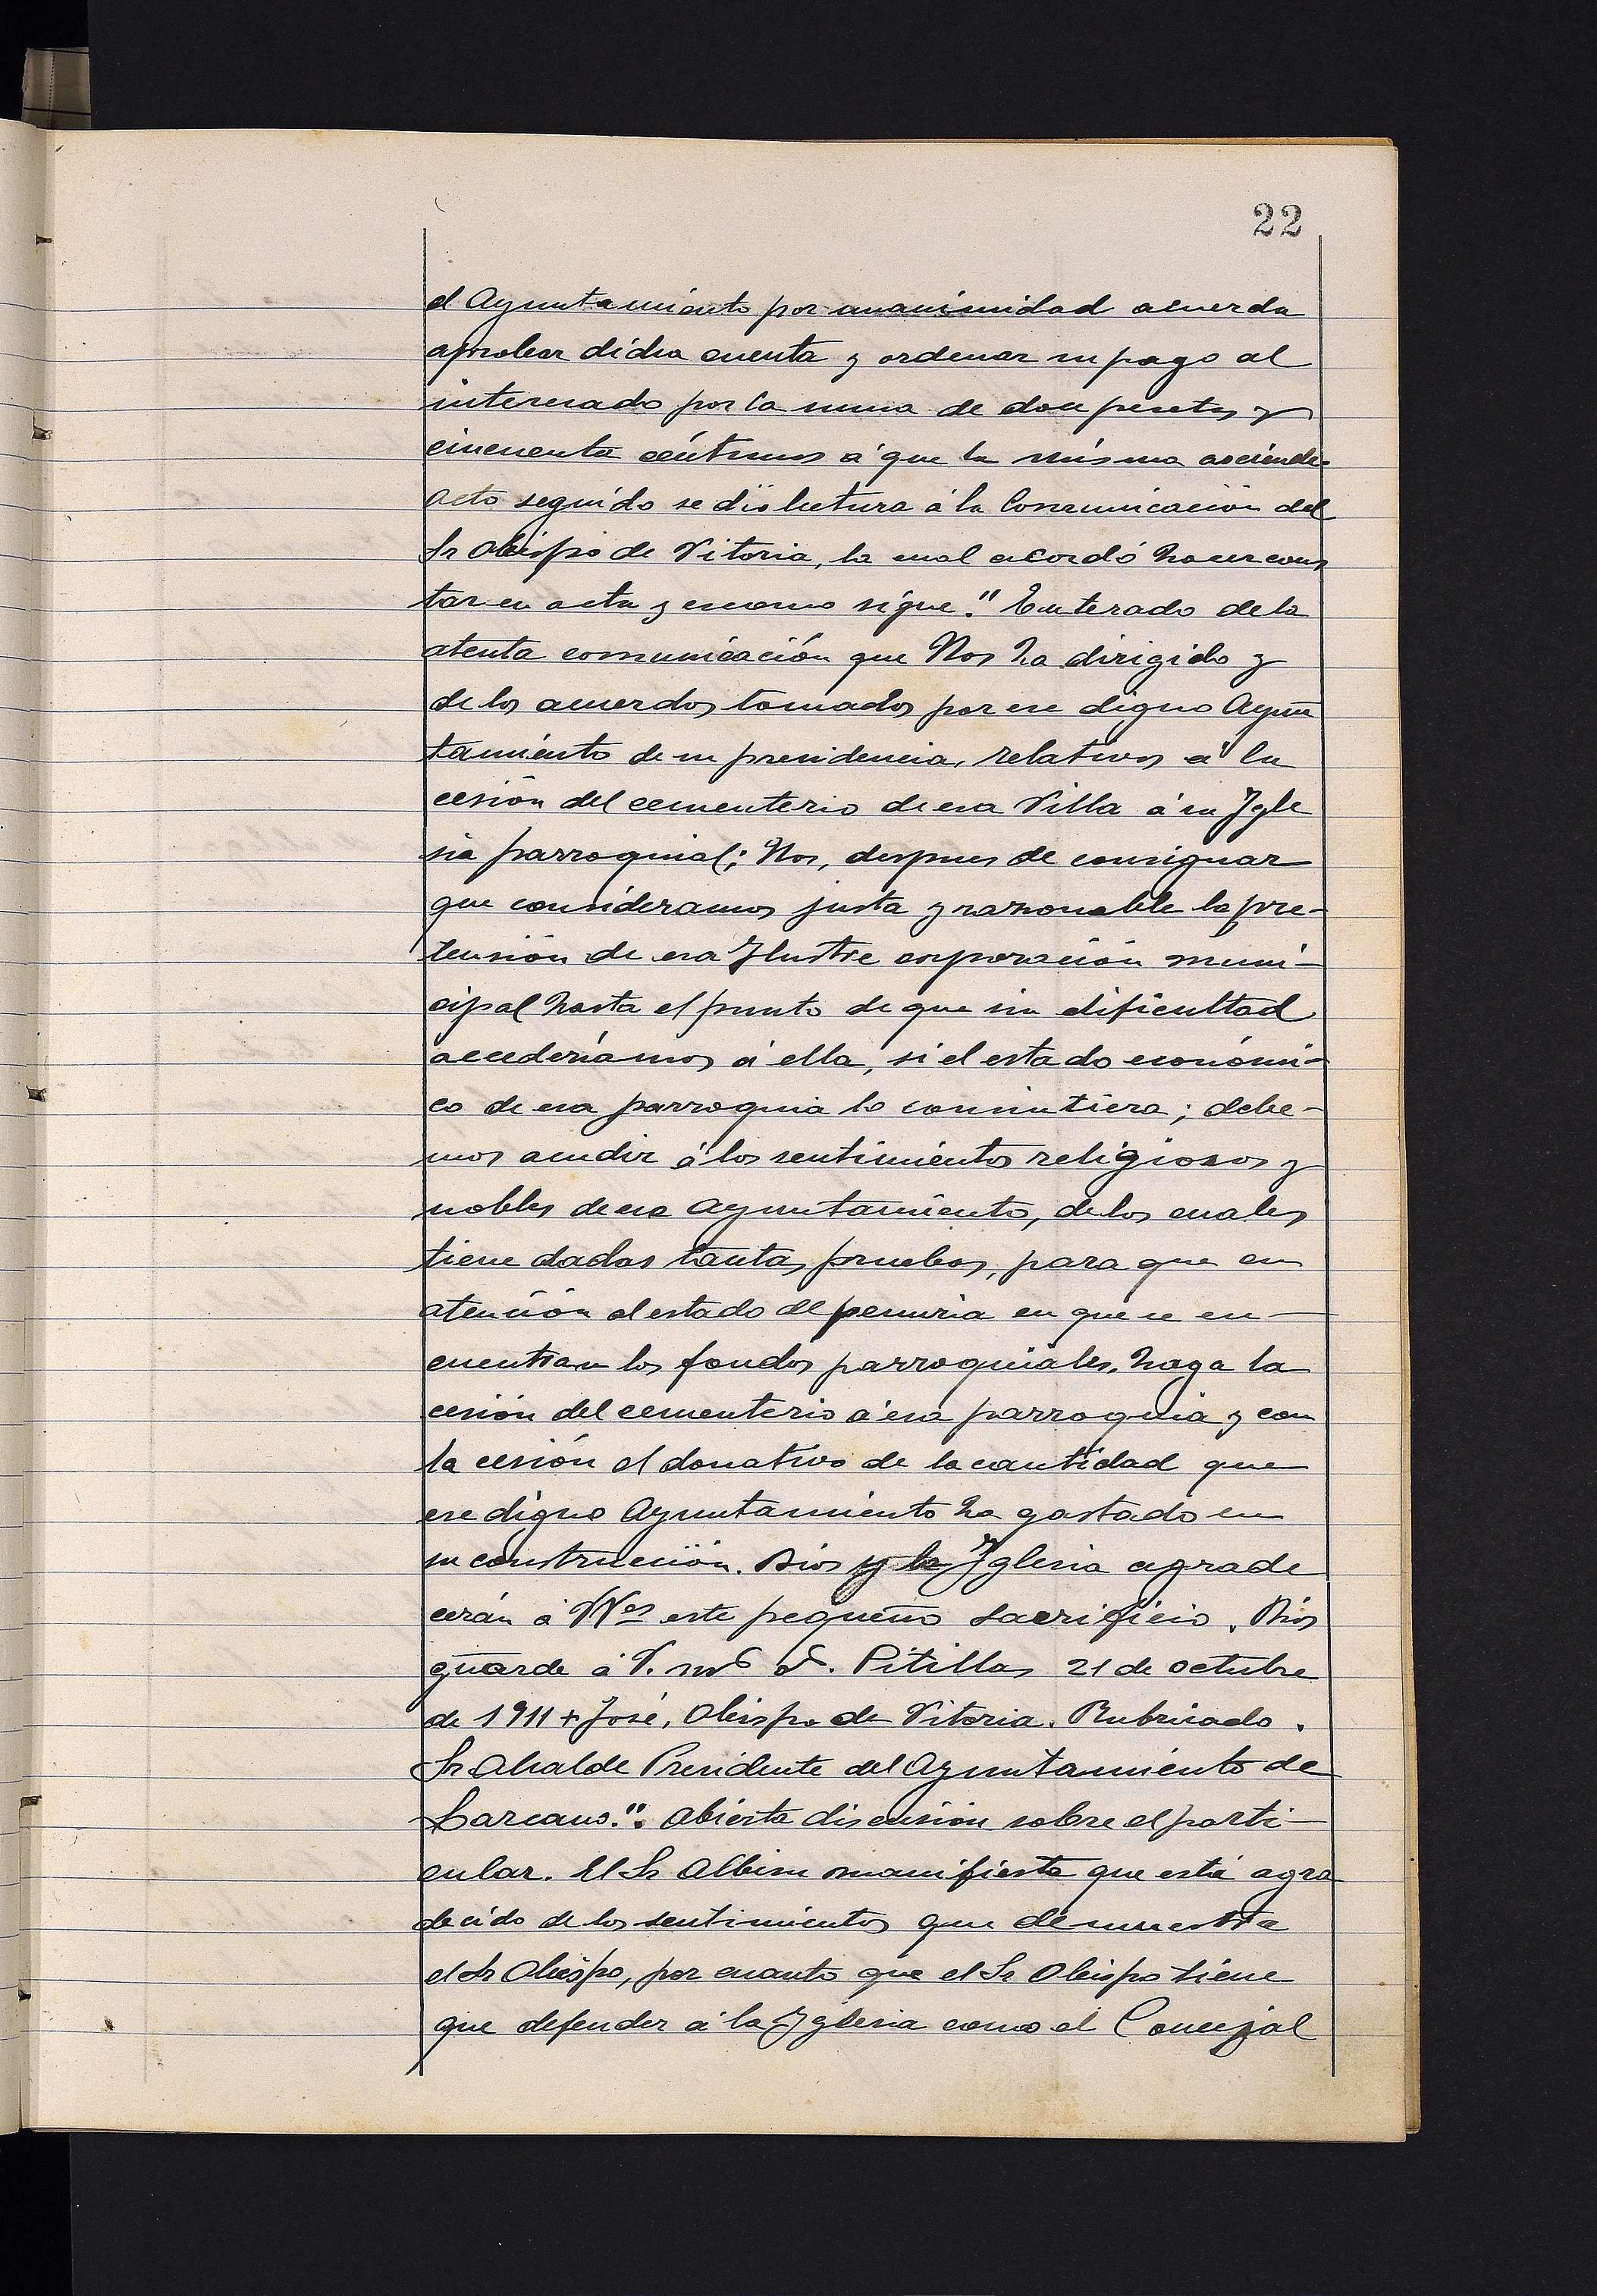 22
el Ayuntamiento por unanimidad acuerda
aprobar dicha cuenta y ordenar su pago al
interesado por la suma de doce pesetas y
cincuenta céntimos á que la misma asciende.
Acto seguido se dió lectura á la Comunicación del
Sr Obispo de Vitoria, la cual acordó hacer cons
tar en acta y es como sigue." Enterado de la
atenta comunicación que Nos ha dirigido y
de los acuerdos tomados por ese digno Ayun
tamiento de su presidencia, relativos á la
cesión del cementerio de esa Villa á su Igle
sia parroquial; Nos, despues de consignar
que consideramos justa y razonable la pre-
tensión de esa Ilustre corporación muni-
cipal hasta el punto de que sin dificultad
accederíamos á ella, si el estado económi-
co de esa parroquia lo consintiera; debe-
mos acudir á los sentimientos religiosos y
nobles de ese Ayuntamiento, de los cuales
tiene dadas tantas pruebas, para que en
atención al estado de penuria en que se en-
cuentran los fondos parroquiales, haga la
cesión del cementerio á esa parroquia y con
la cesión el donativo de la cantidad que
ese digno Ayuntamiento ha gastado en
su construcción. Dios y la Iglesia agrade
cerán á VVes este pequeño sacrificio. Dios
guarde á V. ms as. Pitillas 21 de octubre
de 1911 + José, Obispo de Vitoria. Rubricado.
Sr Alcalde Presidente del Ayuntamiento de
Lazcano.". Abierta discusión sobre el parti-
cular. El Sr Albisu manifiesta que está agra
decido de los sentimientos que demuestra
el Sr Obispo, por cuanto que el Sr Obispo tiene
que defender á la Iglesia como el Concejal